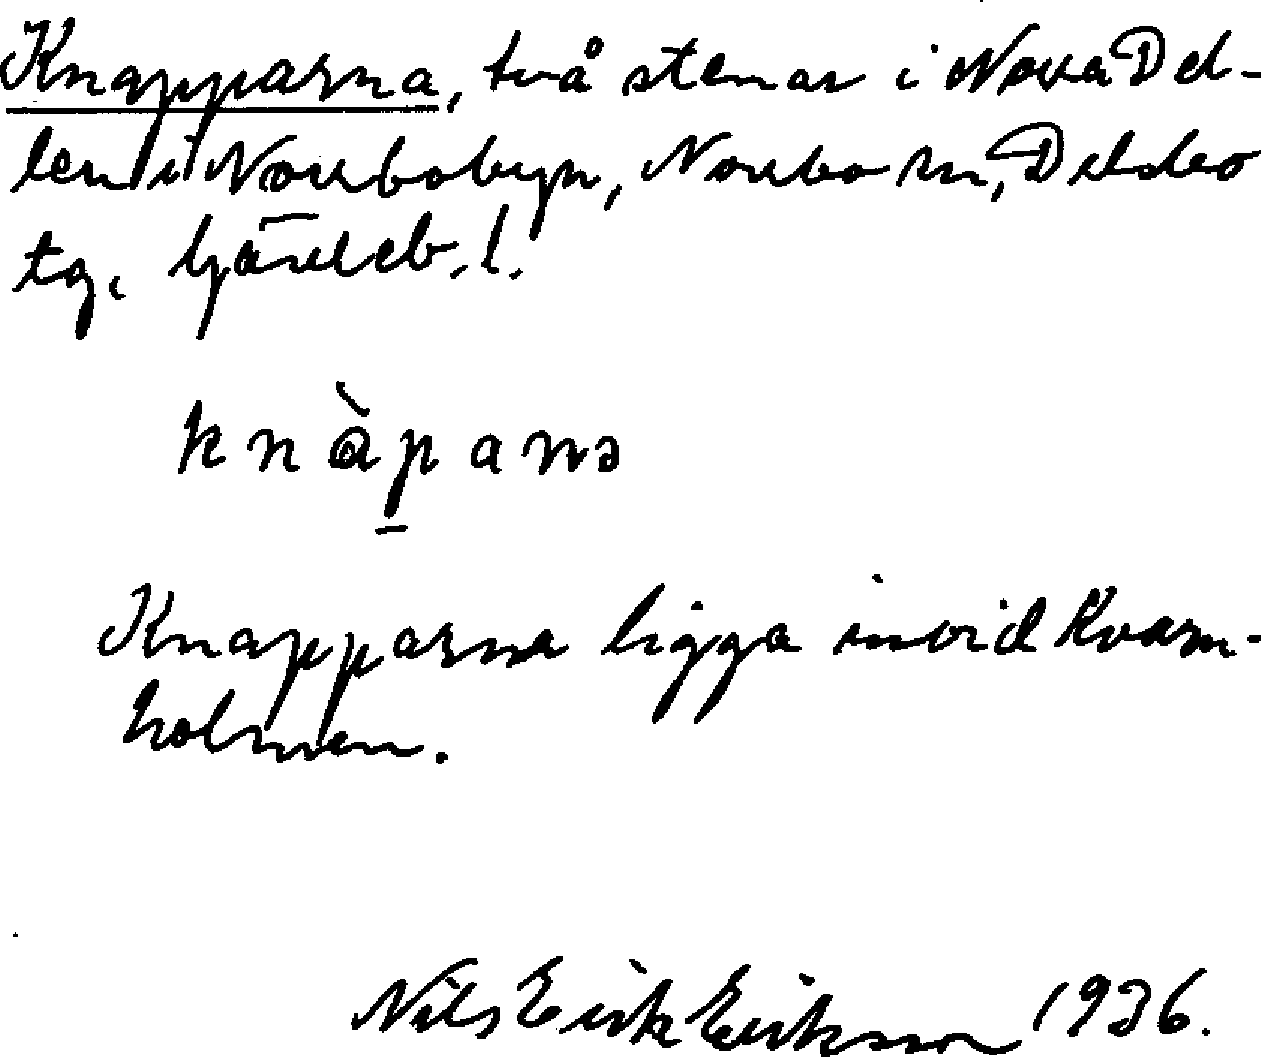 Knapparna, två stenar i Norra Del-
len i Norrbobyn, Norrbo sn, Delsbo
tg. Gävleb. l.
knàpanə
Knapparna ligga invid Kvarn-
holmen.
Nils Erik Eriksson 1936.